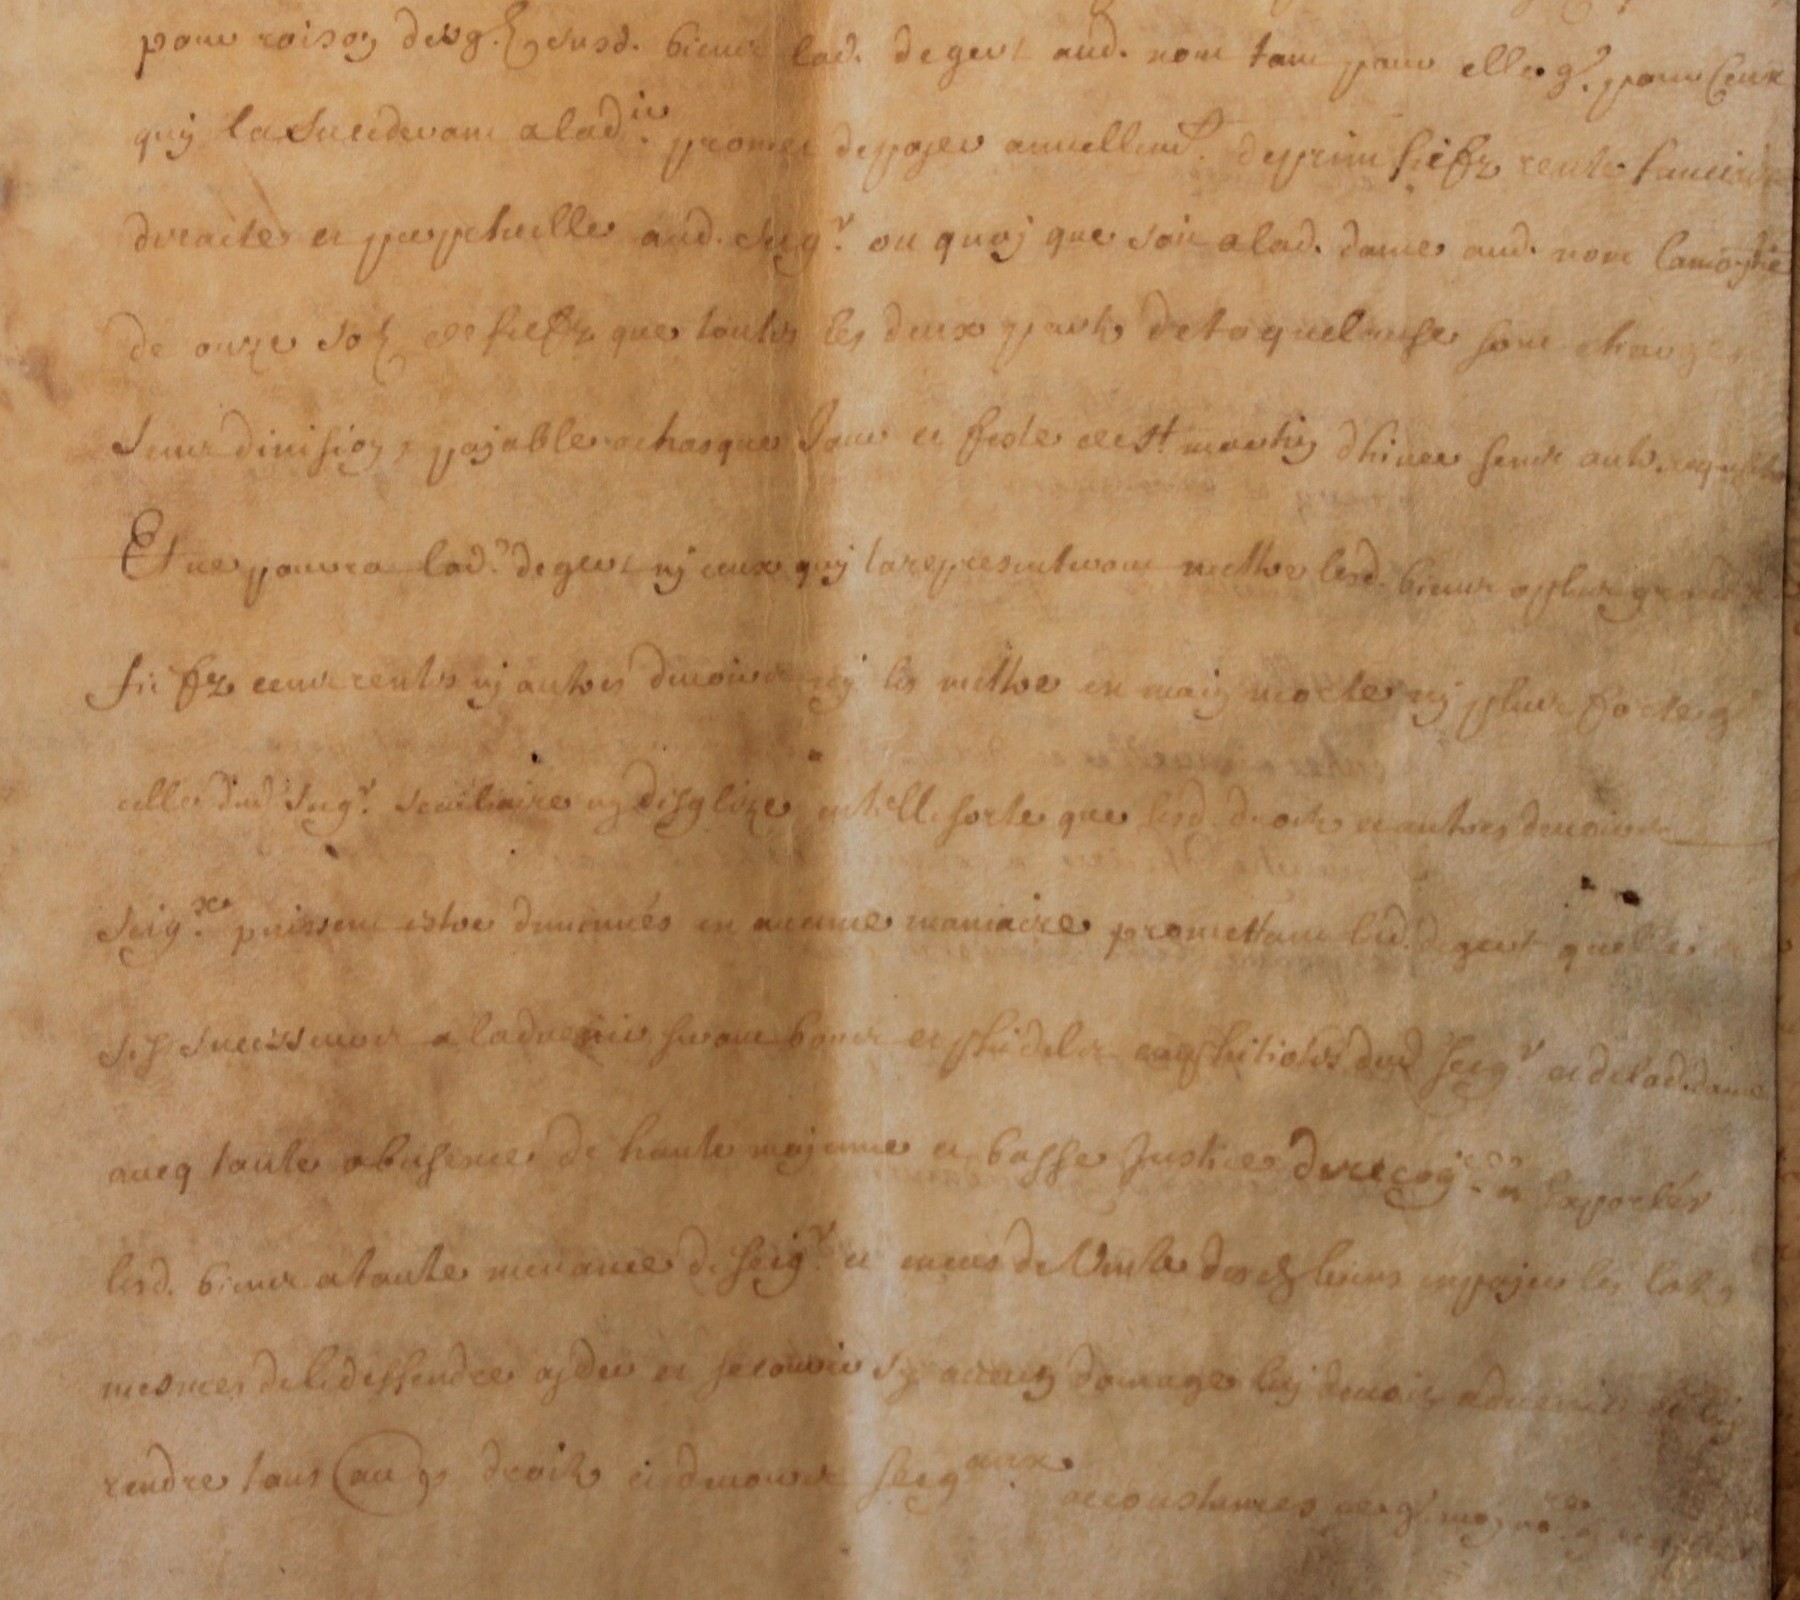 pour raison desq. susd. biens lad. degers aud. nom tant pour elle q. pour ceux
quy la succederont aladir. promet de payer annuellemt. de prim fiefz rente fonciere
directe et perpetuelle aud. seigr. ou quoy que soit a lad. dame aud. nom la moytie
de onze solz de fiefz que toutes les deux partz de ta quelause sont charges
sans division, payable achasque jour et feste de st. martin dhiver sans autre requeste
Et ne pourra lad. degers ny ceux quy la representeront mettre lesd. biens a plus grand
fiefz cens rentes ny autres devoirs ny les mettre en main morte ny plus forte q
celle dud. seigr. seculiaire ny desglize en telle sorte que lesd. droitz et autres devoirs
seigx. puissent estre diminués en aucune maniaire promettant lad. degers quelle et
ses successeurs a ladvenir seront bons et phidelles emphitiotes dud seigr. et de lad. dame
aveq toute obeisence de haute moyenne et basse justice de recogre. et exporter
lesd. biens a toute muance de seigr. et en cas de vente diceux biens en payer les lotz
mesmes de le deffendre ayder et secourir sy aucun domage luy devoit advenir et luy
rendre tous autres droitz et devoirs seigaux. accoustumes